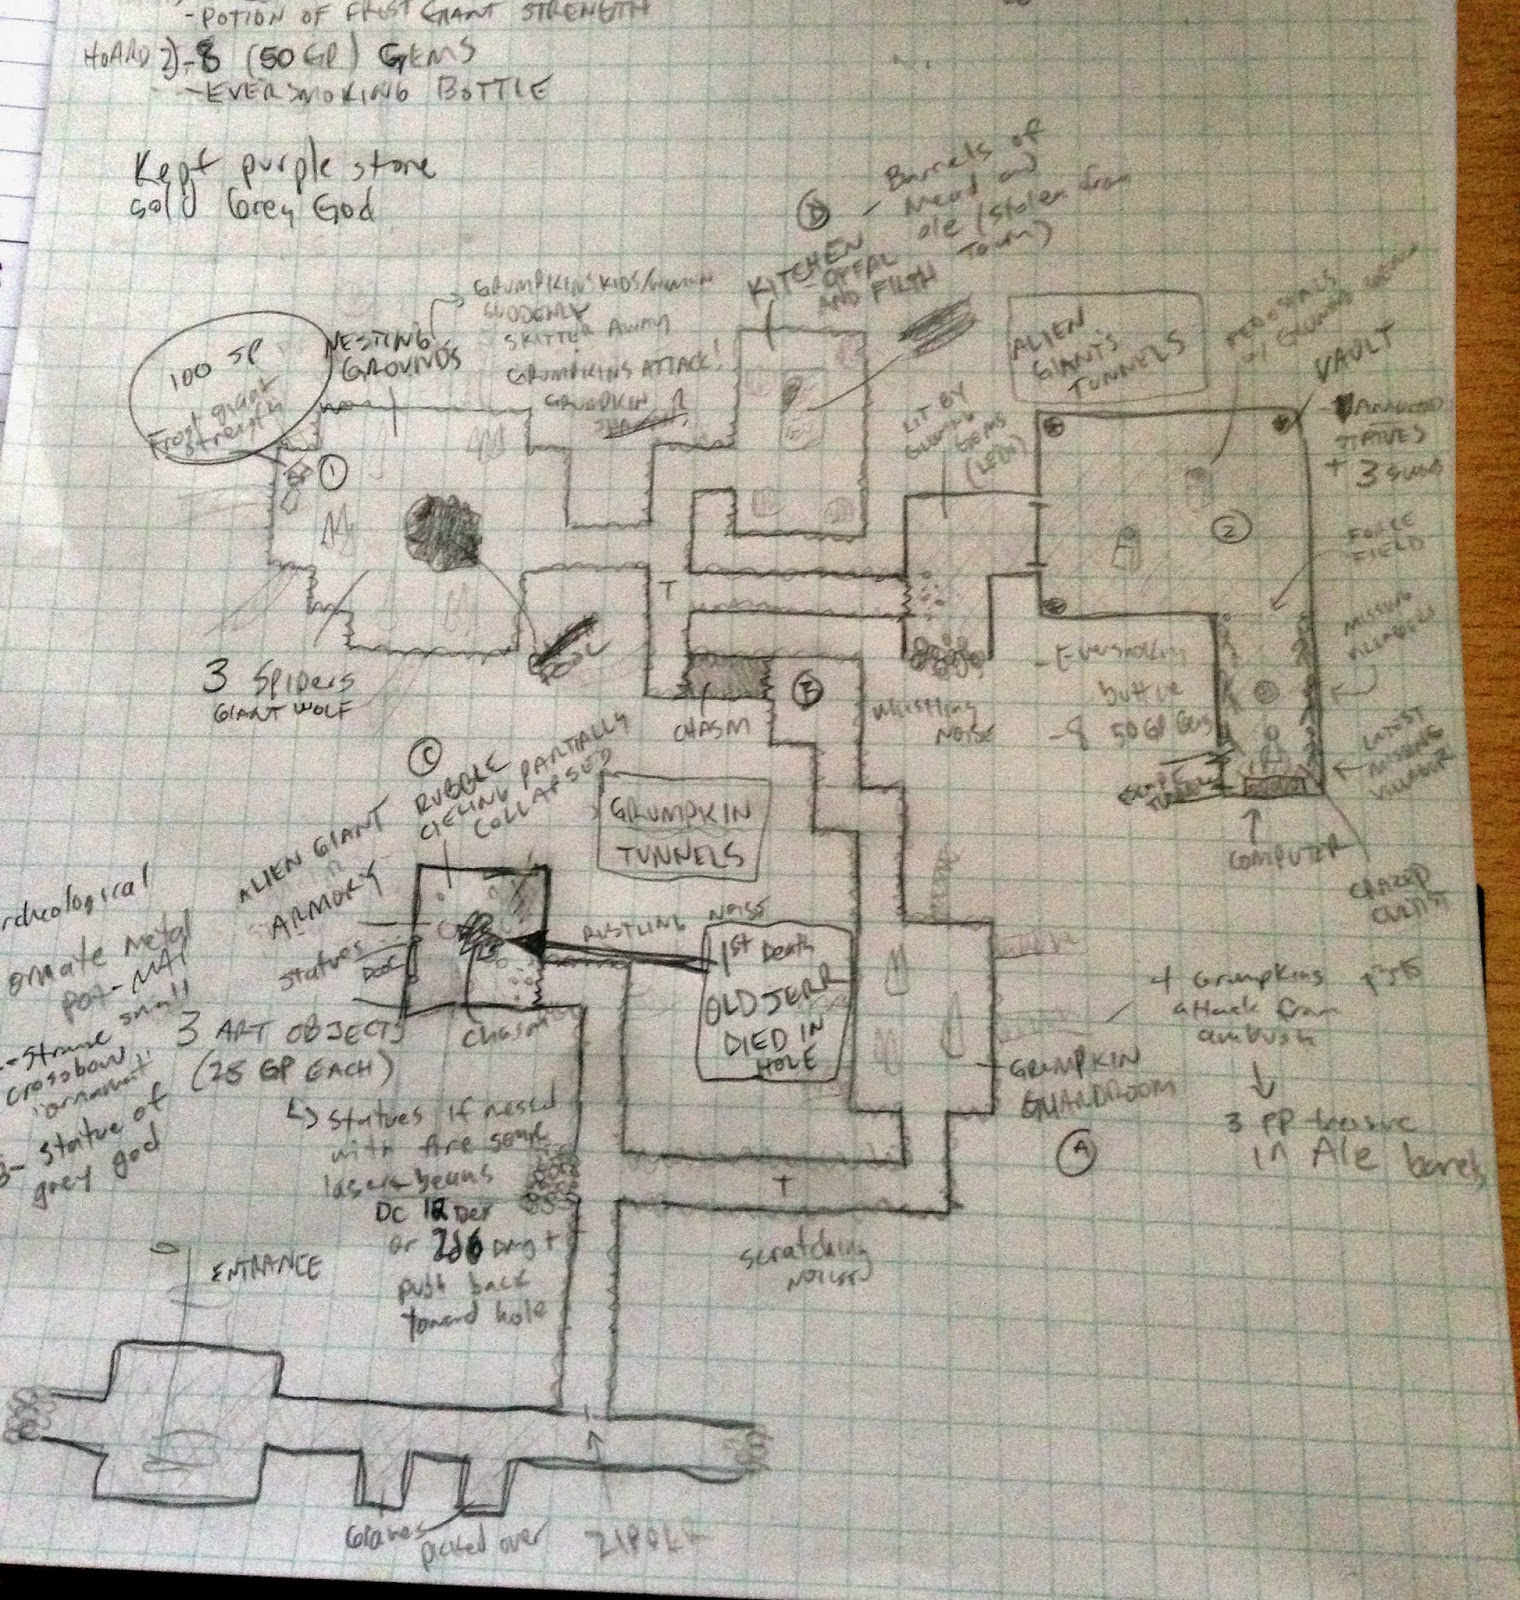 - POTION OF FROST GIANT STRENGTH
HOARD 2) - 8 (50 GP) GEMS
- EVERSMOKING BOTTLE
Kept purple stone
sold Grey God
D
- Barrels of
Mead and
ale (stolen from
Town)
KITCHEN
- OFFAL
AND FILTH
100 SP
Frost giant
strength
NESTING
GROUNDS
GRUMPKIN'S KIDS/
SUDDENLY
SKITTER AWAY
GRUMPKINS ATTACK!
GRUMPKIN
ALIEN
GIANT'S
TUNNELS
PEDESTALS
VAULT
STATUES
+ 3
LIT BY
GLOWING
GEMS
(LEDS)
1
2
FORCE
FIELD
MISSING
VILLAGERS
LATEST
MISSING
3 SPIDERS
GIANT WOLF
POOL
T
CHASM
B
Whistling
NOISE
- Eversmoking
bottle
- 8 50 GP Gems
ESCAPE
TUNNEL
COMPUTER
CRAZED
C
RUBBLE
CIELING PARTIALLY
COLLAPSED
GRUMPKIN
TUNNELS
ALIEN GIANT
ARMORY
statues
Door
RUSTLING
NOISE
1st Death
OLD JERR
DIED IN
HOLE
chasm
ornate metal
- strange small
crossbow
"ornament"
3 - statue of
grey god
3 ART OBJECTS
(25 GP EACH)
statues if messed
with fire some
laser beams
DC 12 Dex
or 2d6 Dmg +
push back
toward hole
4 Grumpkins
attack from
ambush
3 PP treasure
in Ale barrels
GRUMPKIN
GUARDROOM
A
T
scratching
NOISES
ENTRANCE
Graves
picked over